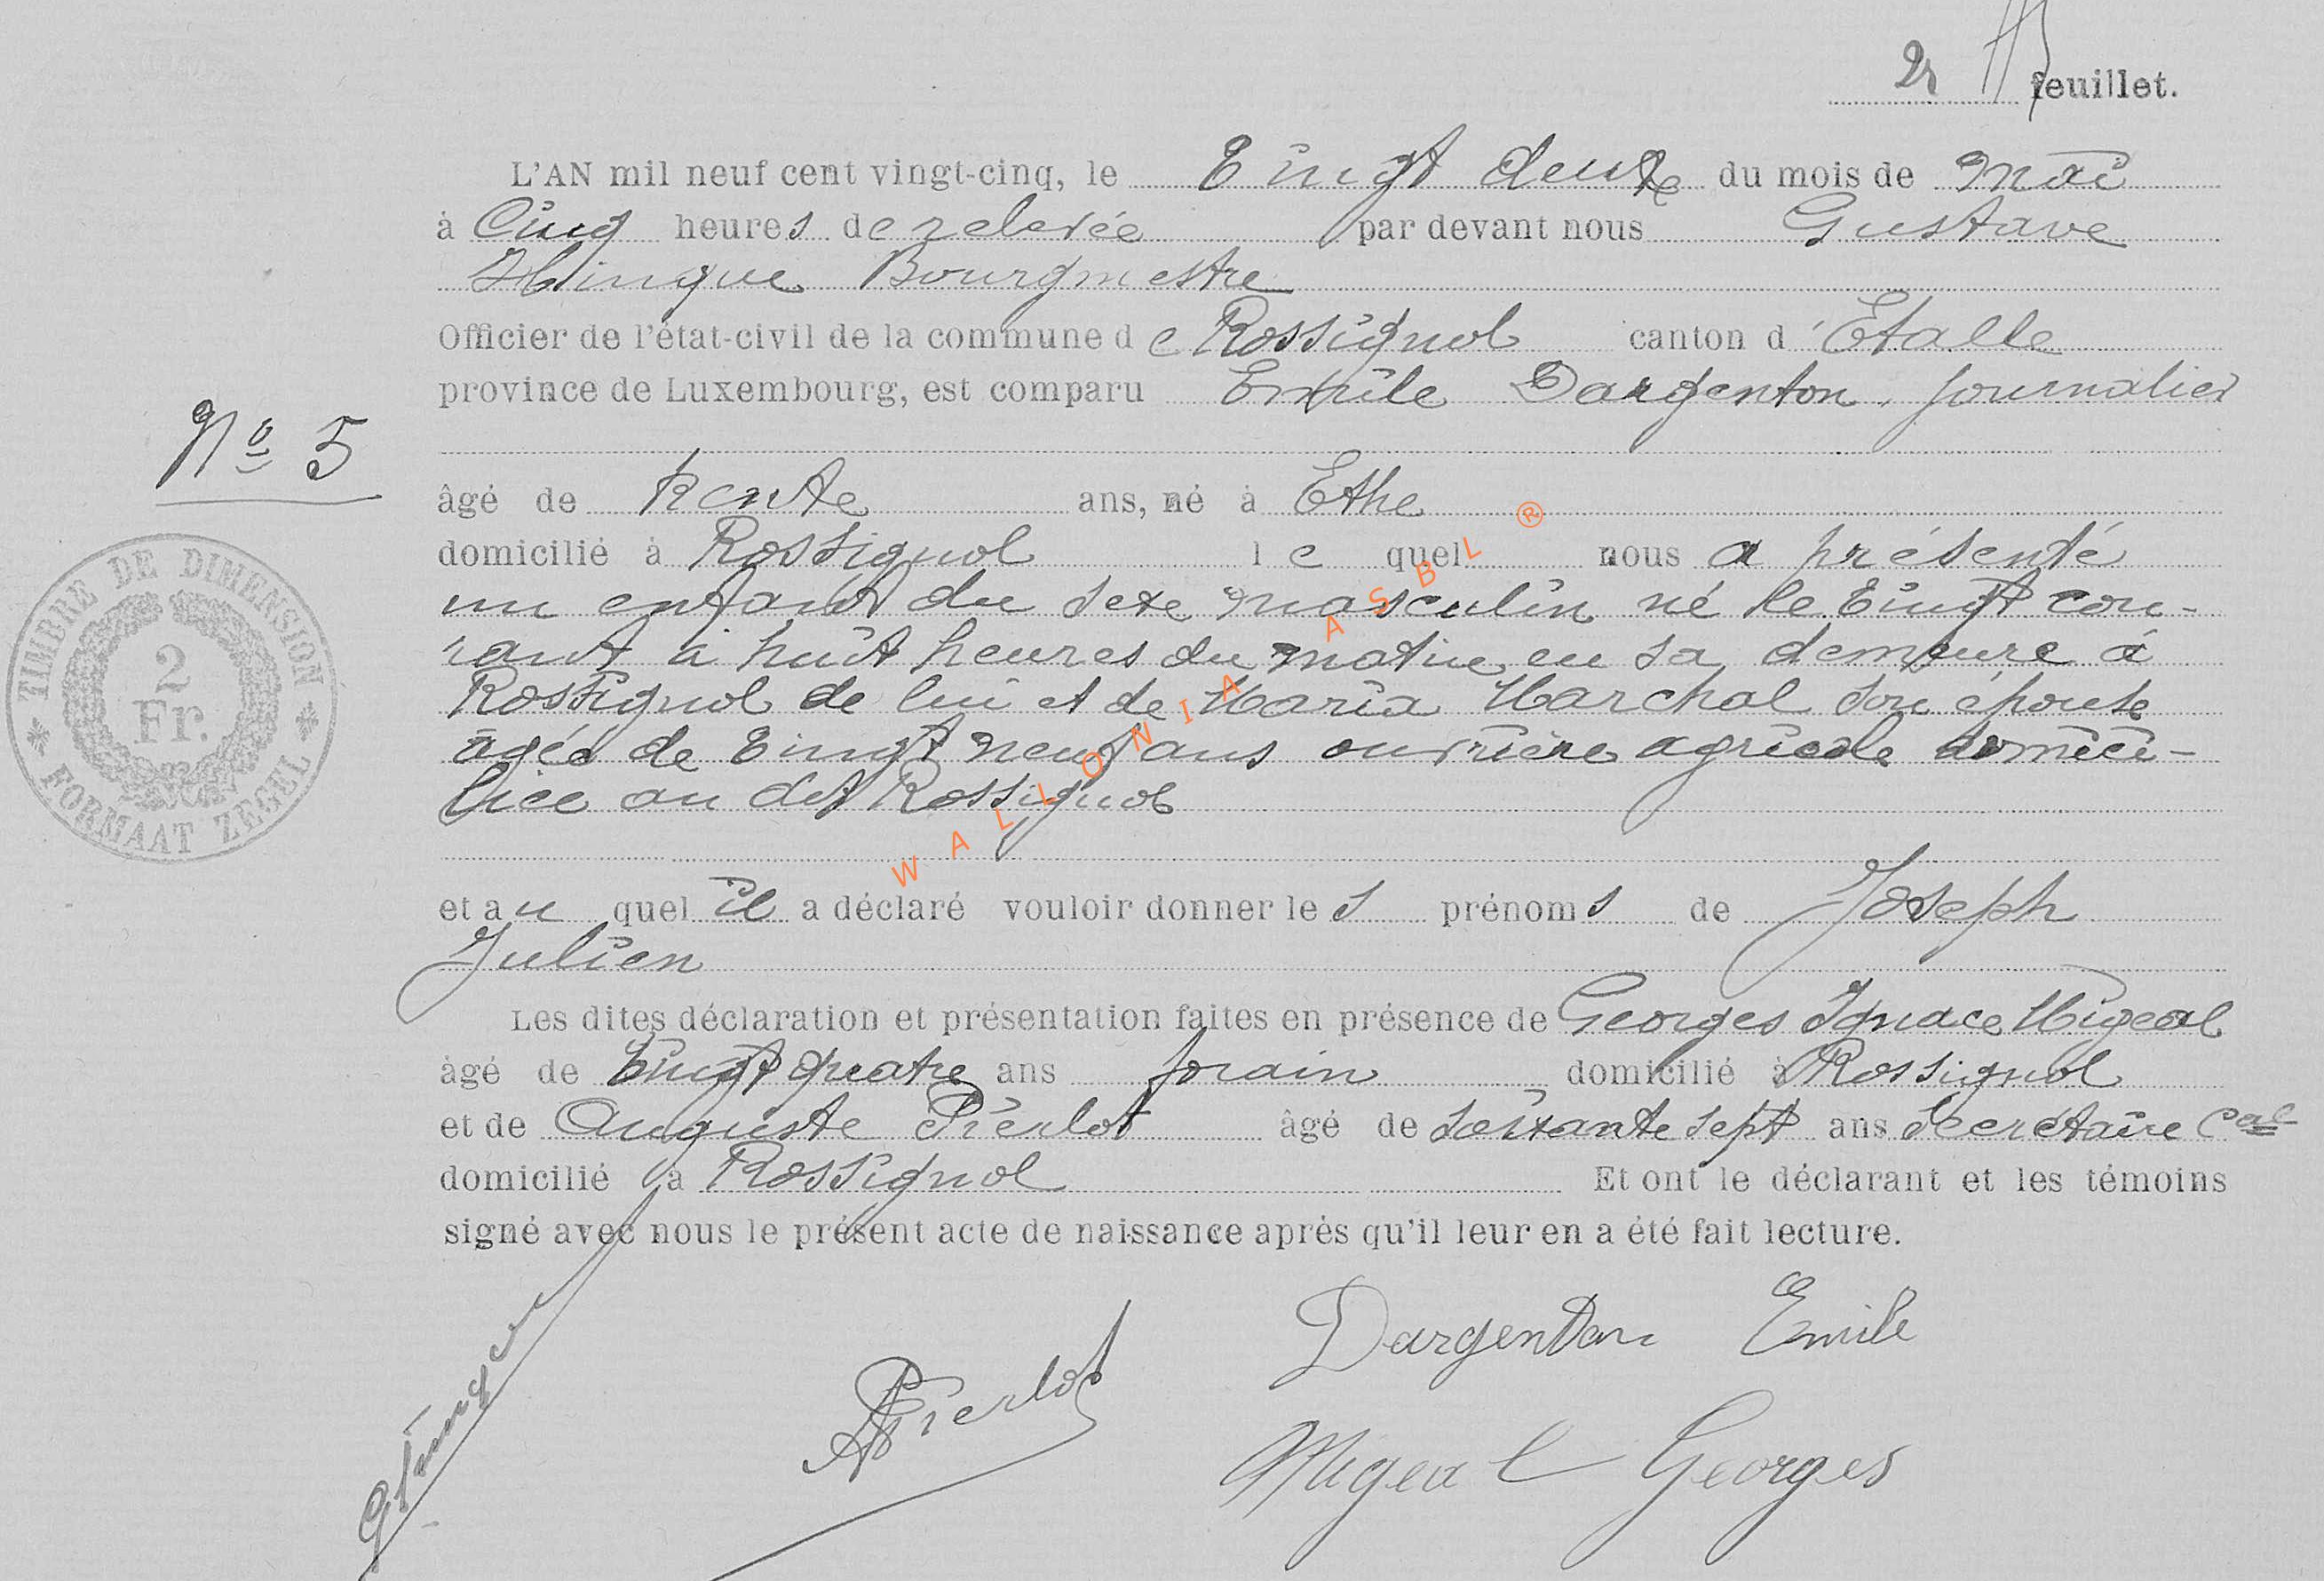 2 feuillet.
L'AN mil neuf cent vingt-cinq, le Vingt deux du mois de Mai
à Cinq heures de relevée par devant nous Gustave
Hinque Bourgmestre
Officier de l'état-civil de la commune de Rossignol canton d'Etalle
province de Luxembourg, est comparu Emile Dargenton, journalier
No 5
âgé de trente ans, né à Ethe
domicilié à Rossignol lequel nous a présenté
un enfant du sexe masculin né le Vingt cou-
rant à huit heures du matin en sa demeure à
Rossignol de lui et de Maria Marchal son épouse
agée de Vingt neuf ans ouvrière agricole domici-
liée au dit Rossignol
et au quel il a déclaré vouloir donner les prénoms de Joseph
Julien
Les dites déclaration et présentation faites en présence de Georges Ignace Migeal
âgé de Vingt quatre ans forain domicilié à Rossignol
et de Auguste Pierlot âgé de soixante sept ans Secrétaire Cal
domicilié à Rossignol Et ont le déclarant et les témoins
signé avec nous le présent acte de naissance après qu'il leur en a été fait lecture.
Dargenton Emile
APierlot
Migeal Georges
TIMBRE DE DIMENSION
2
Fr.
FORMAAT ZEGEL
WALLONIA ASBL ®